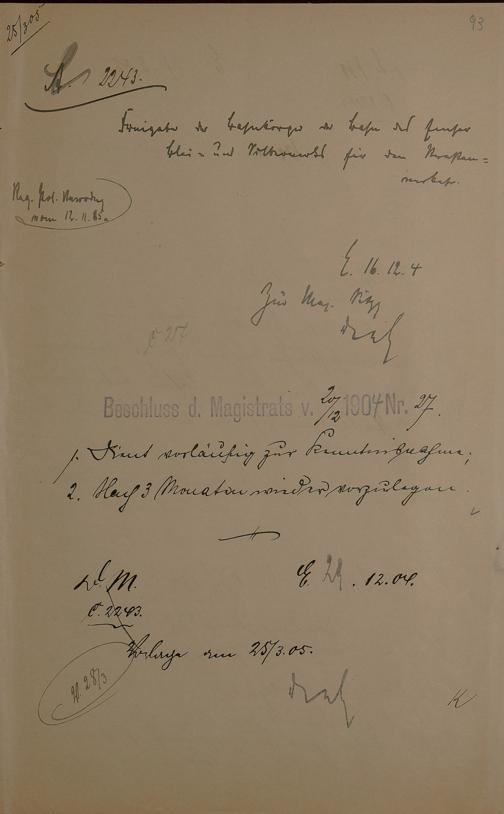 25/3 05
93
A. 2243.
Freigabe der Bahnkörper der Bahn des Emser
Blei- und Silberwerks für den Straßen-
verkehr.
Reg. Pol. Verordng
vom 12.11.
E. 16.12.4
Zur Mag. Sitzg
Beschluss d. Magistrats v. 20/12 1904 Nr. 27.
1. Dient vorläufig zur Kenntnisnahme;
2. Nach 3 Monaten wieder vorzulegen.
d. M.
C. 2243.
E 29. 12.04.
Vorlage am 25/3.05.
28/3